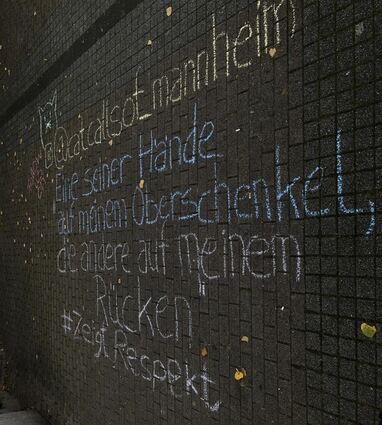 @catcallsof_mannheim
Eine seiner Hände
auf meinem Oberschenkel,
die andere auf meinem
Rücken
#Zeigt Respekt